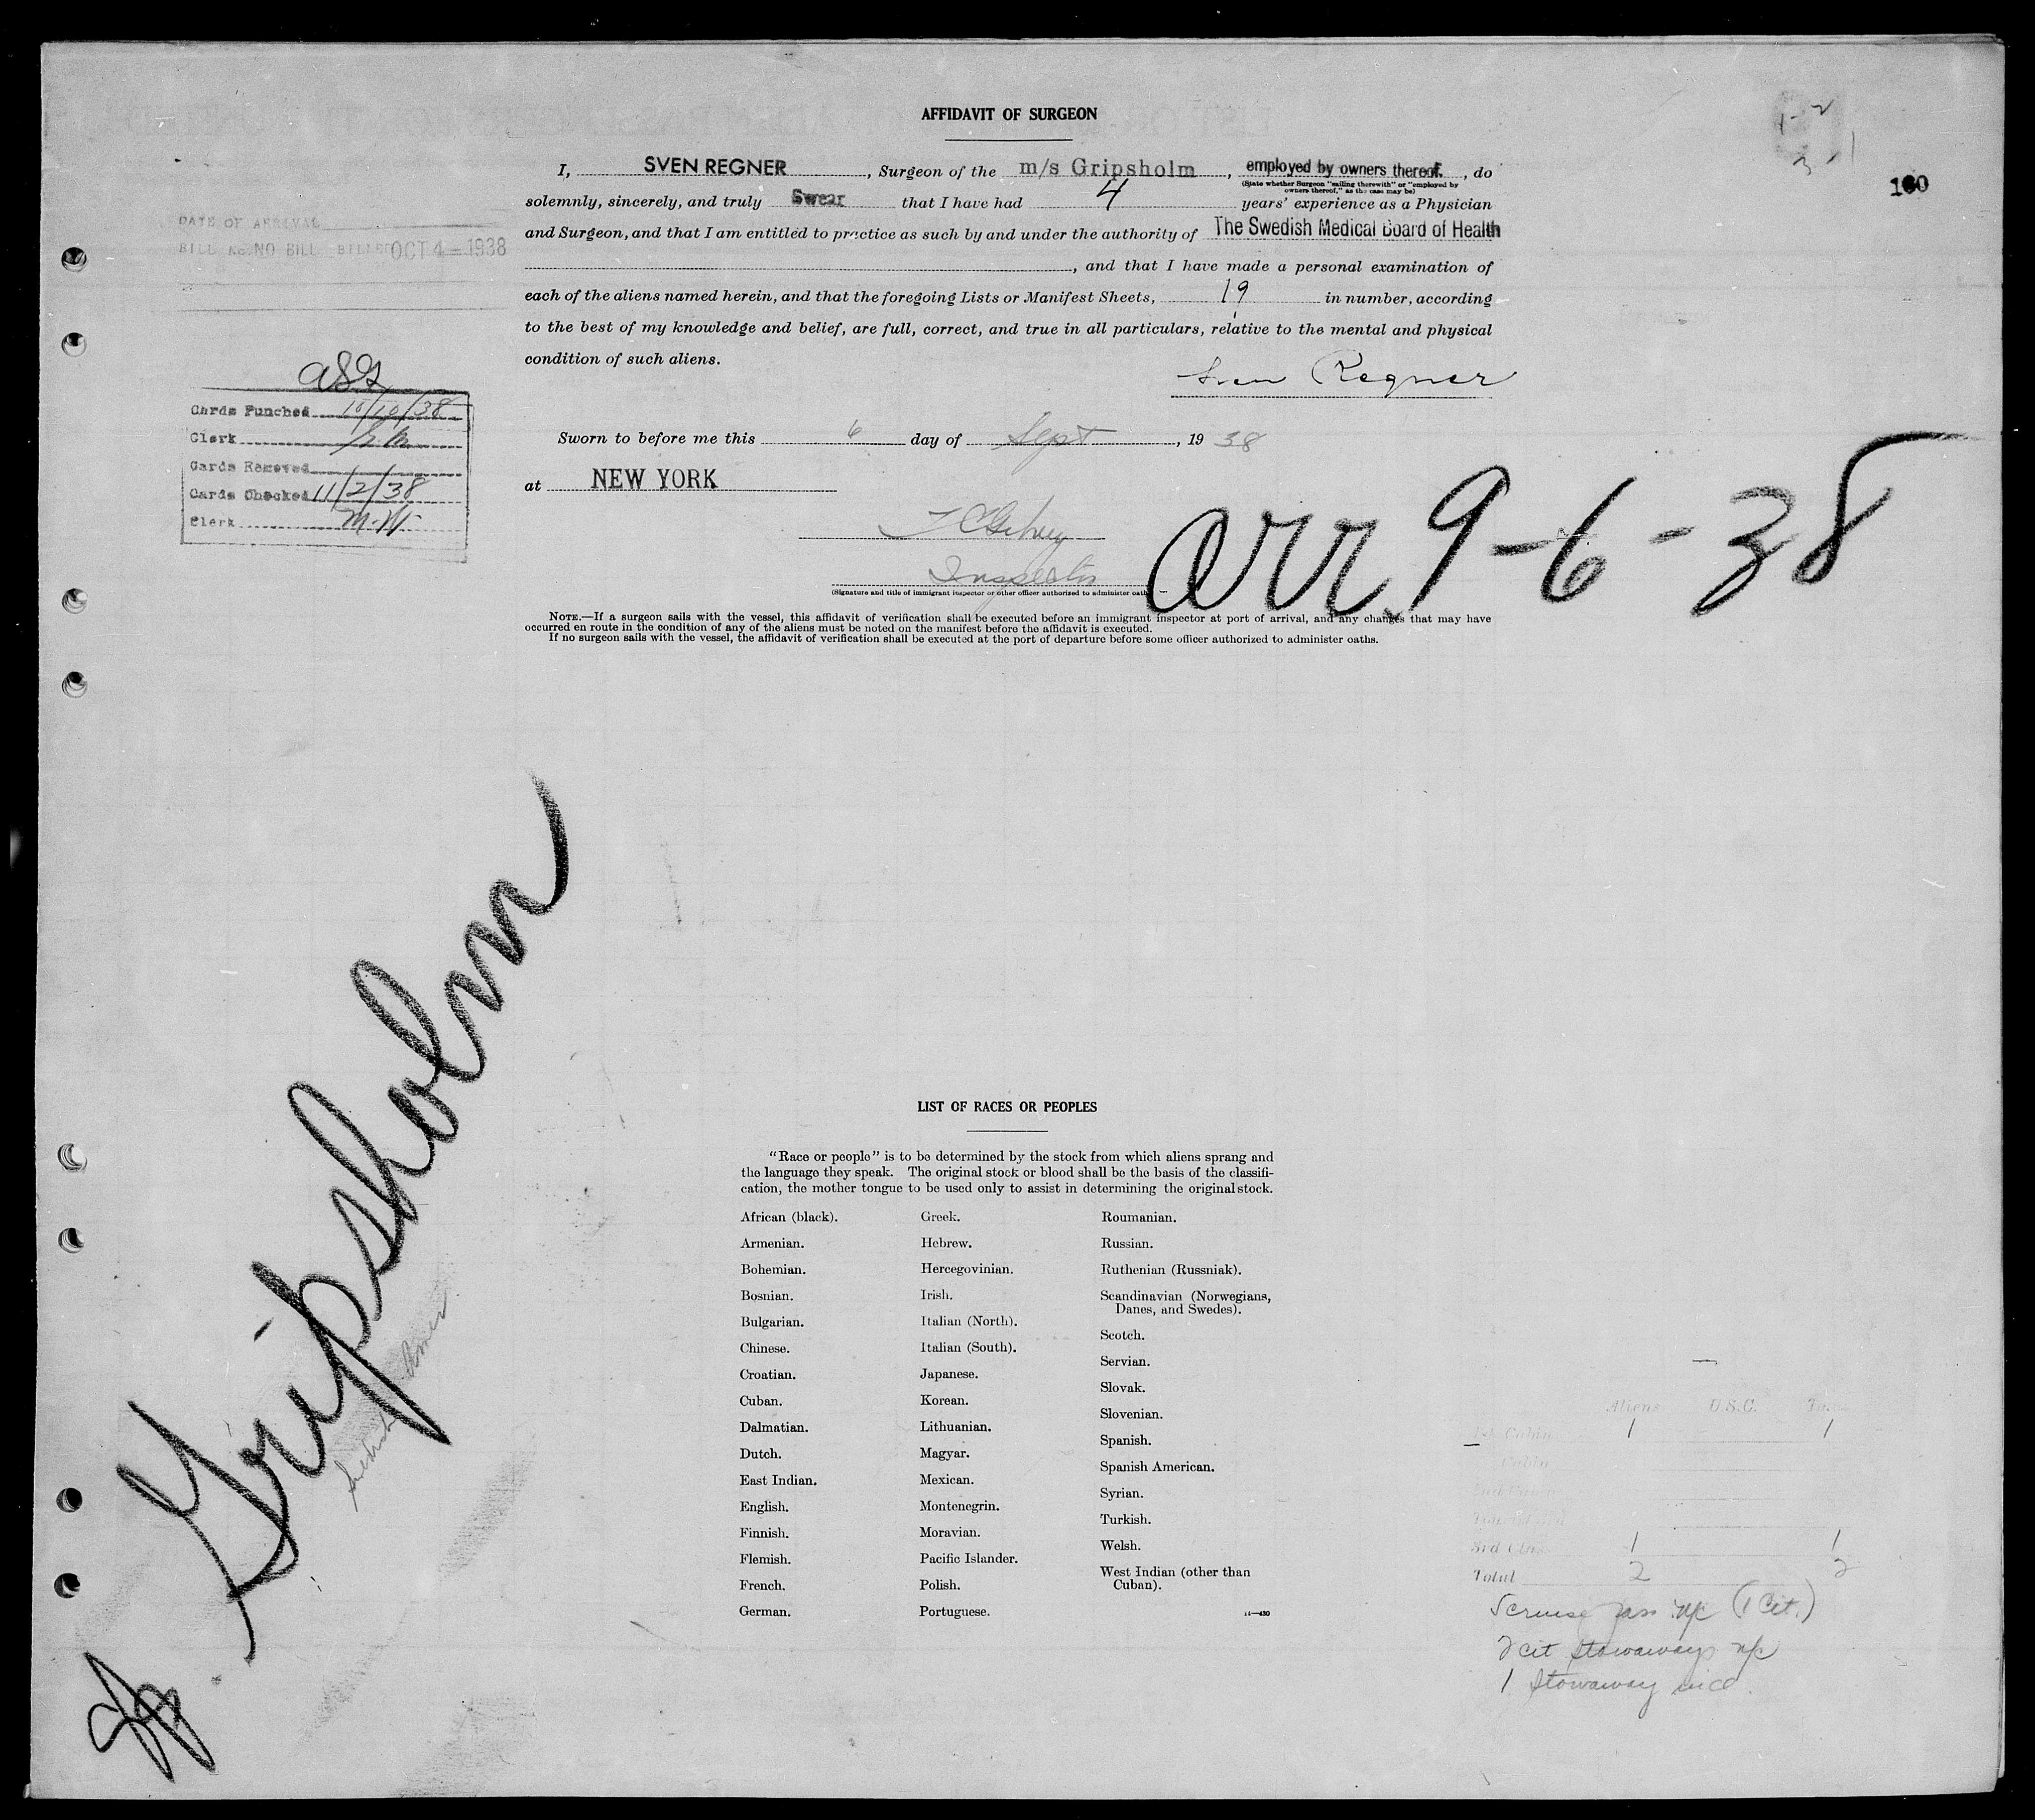 AFFIDAVIT OF SURGEON
I, SVEN REGNER, Surgeon of the m/s Gripsholm, employed by owners thereof., do
(State whether Surgeon "sailing therewith" or "employed by
owners thereof," as the case may be)
solemnly, sincerely, and truly Swear that I have had 4 years' experience as a Physician
and Surgeon, and that I am entitled to practice as such by and under the authority of The Swedish Medical Board of Health
, and that I have made a personal examination of
each of the aliens named herein, and that the foregoing Lists or Manifest Sheets, 19 in number, according
to the best of my knowledge and belief, are full, correct, and true in all particulars, relative to the mental and physical
condition of such aliens.
Sven Regner
Sworn to before me this 6 day of Sept, 1938
at NEW YORK
Inspector
(Signature and title of immigrant inspector or other officer authorized to administer oath)
NOTE.—If a surgeon sails with the vessel, this affidavit of verification shall be executed before an immigrant inspector at port of arrival, and any changes that may have
occurred en route in the condition of any of the aliens must be noted on the manifest before the affidavit is executed.
If no surgeon sails with the vessel, the affidavit of verification shall be executed at the port of departure before some officer authorized to administer oaths.
arr. 9-6-38
1-2
3
160
DATE OF ARRIVAL
BILL No. NO BILL BILLED OCT 4 - 1938
Cards Punched 10/10/38
Clerk
Cards Removed
Cards Checked 11/2/38
Clerk M.W.
Gripsholm
LIST OF RACES OR PEOPLES
"Race or people" is to be determined by the stock from which aliens sprang and
the language they speak. The original stock or blood shall be the basis of the classifi-
cation, the mother tongue to be used only to assist in determining the original stock.
African (black).
Armenian.
Bohemian.
Bosnian.
Bulgarian.
Chinese.
Croatian.
Cuban.
Dalmatian.
Dutch.
East Indian.
English.
Finnish.
Flemish.
French.
German.
Greek.
Hebrew.
Hercegovinian.
Irish.
Italian (North).
Italian (South).
Japanese.
Korean.
Lithuanian.
Magyar.
Mexican.
Montenegrin.
Moravian.
Pacific Islander.
Polish.
Portuguese.
Roumanian.
Russian.
Ruthenian (Russniak).
Scandinavian (Norwegians,
Danes, and Swedes).
Scotch.
Servian.
Slovak.
Slovenian.
Spanish.
Spanish American.
Syrian.
Turkish.
Welsh.
West Indian (other than
Cuban).
14—430
Aliens U.S.C. Total
1st Cabin 1 1
Cabin
3rd Class 1 1
Total 2 2
5 cruise pass n/c (1 Cit.)
2 cit stowaways n/c
1 Stowaway